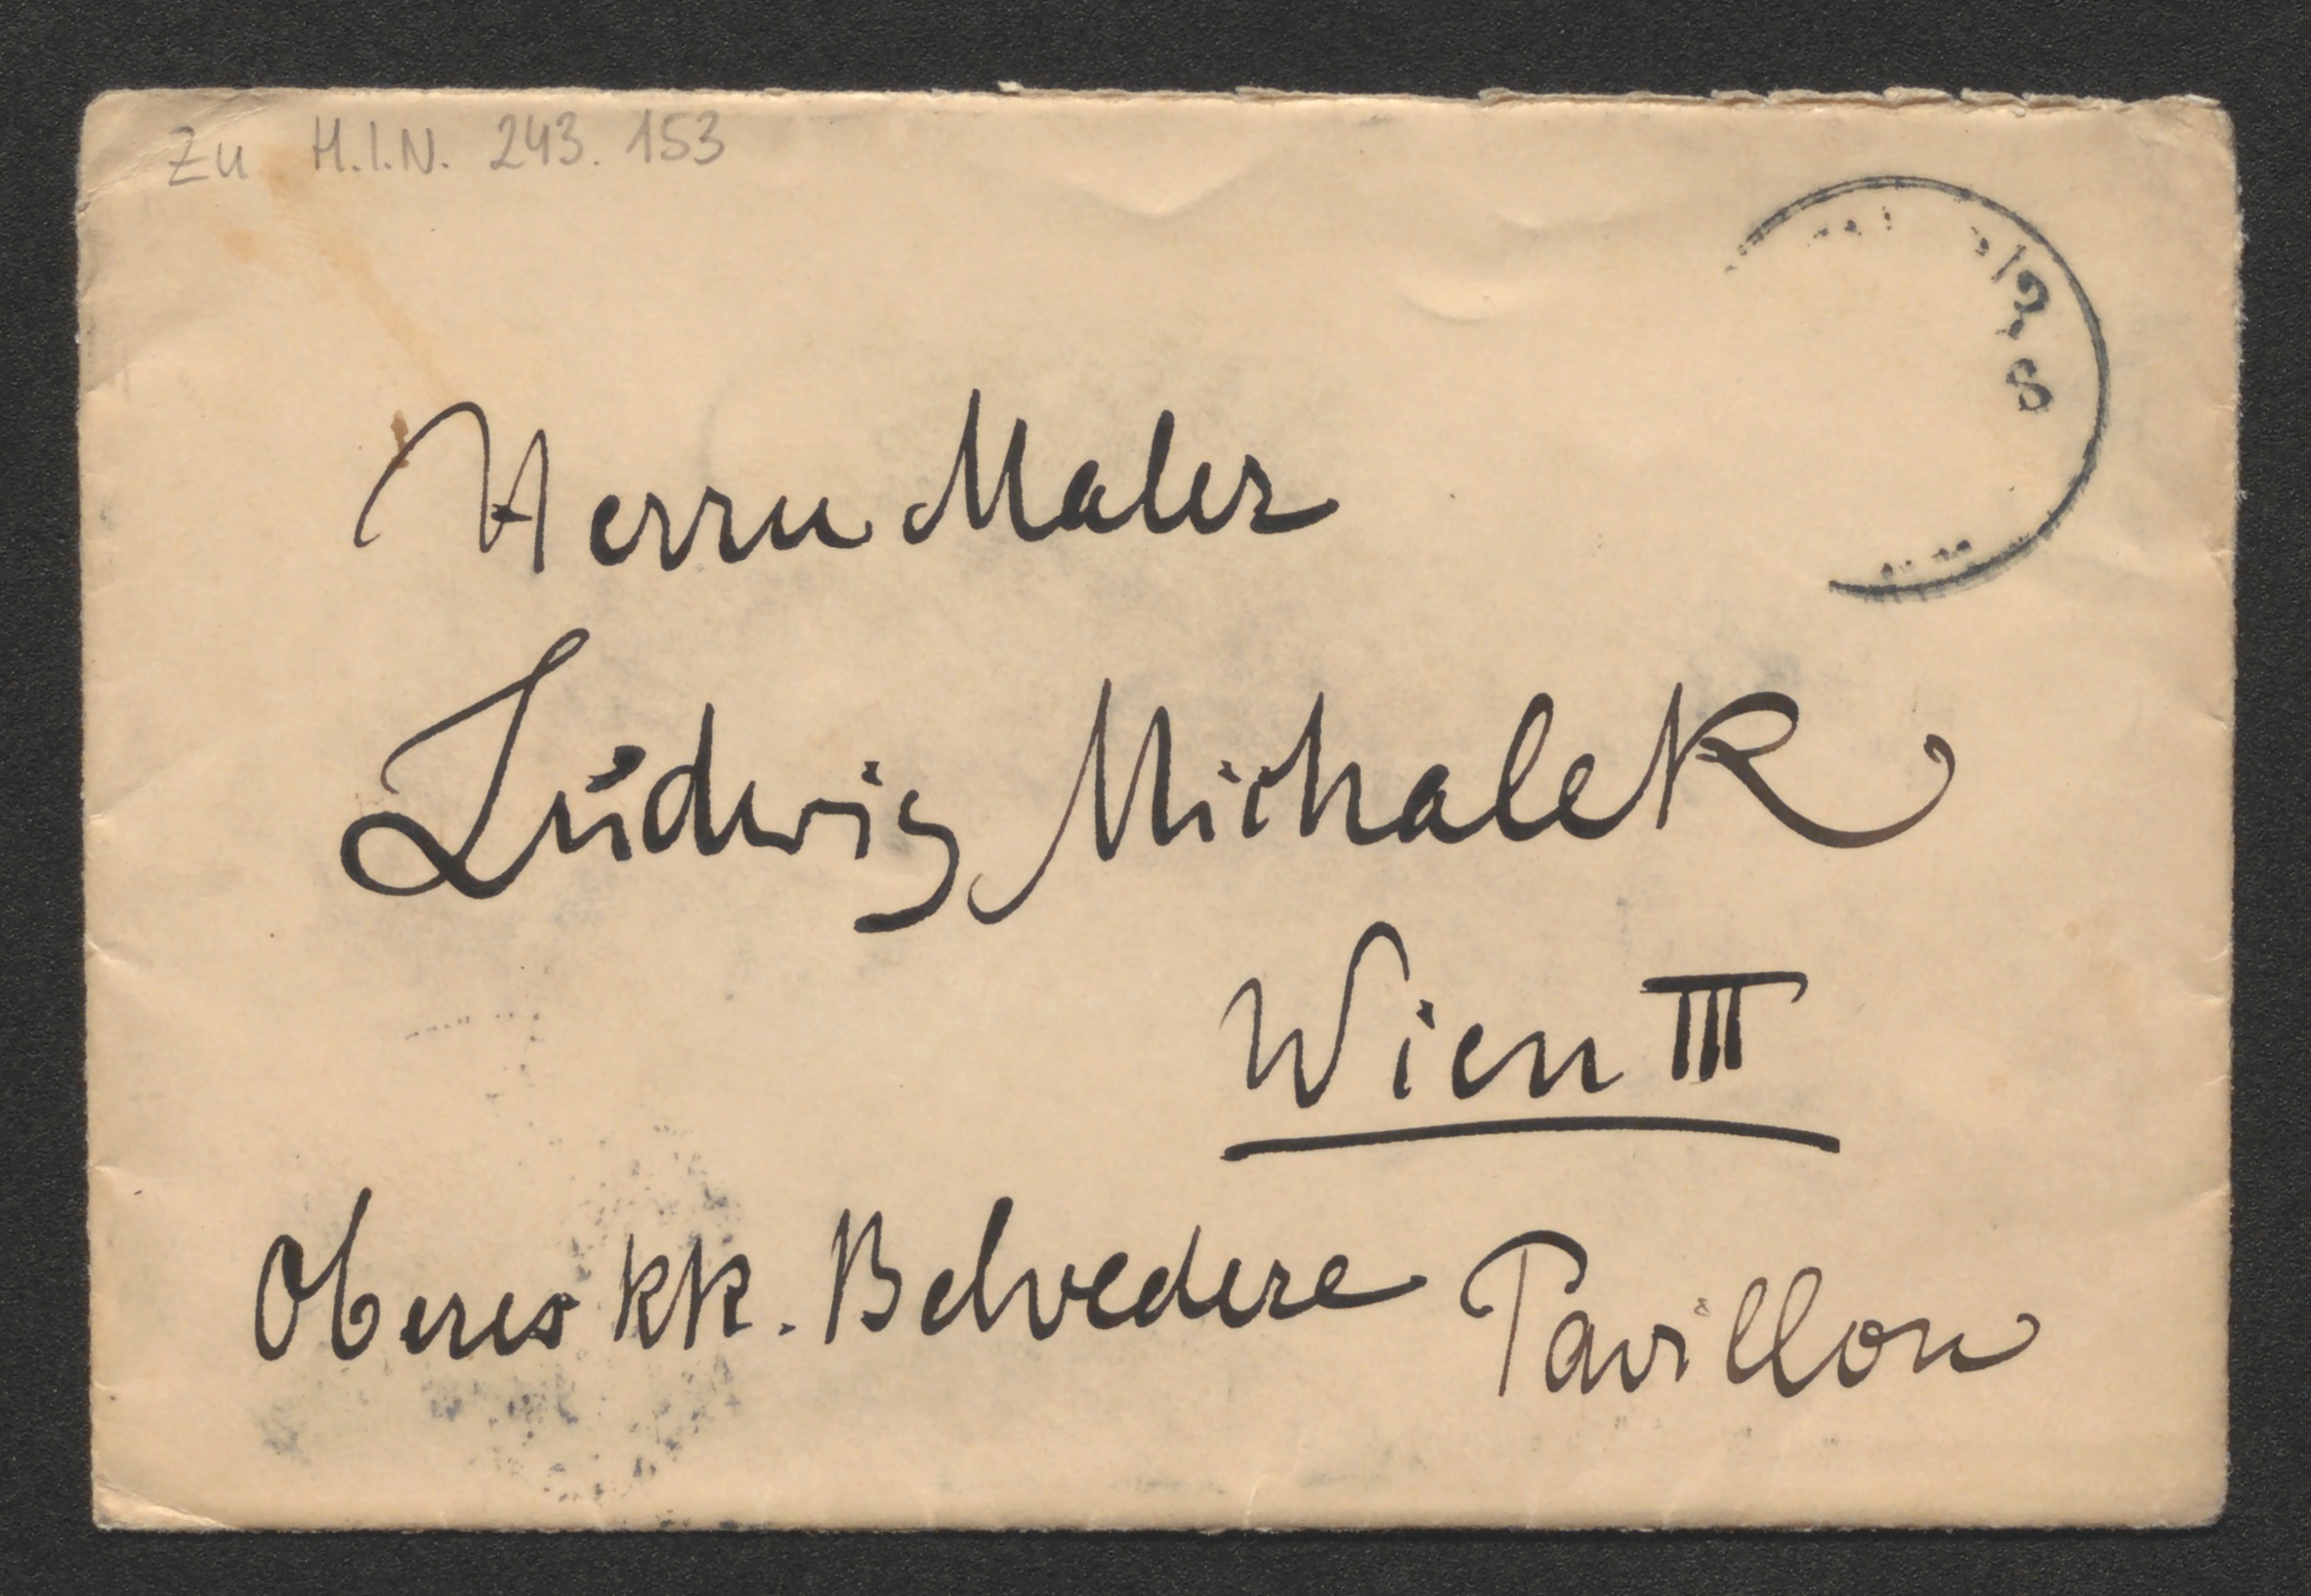 Zu H.I.N. 243.153
Herrn Maler
Ludwig Michalek
Wien III
Oberes kk. Belvedere Pavillon